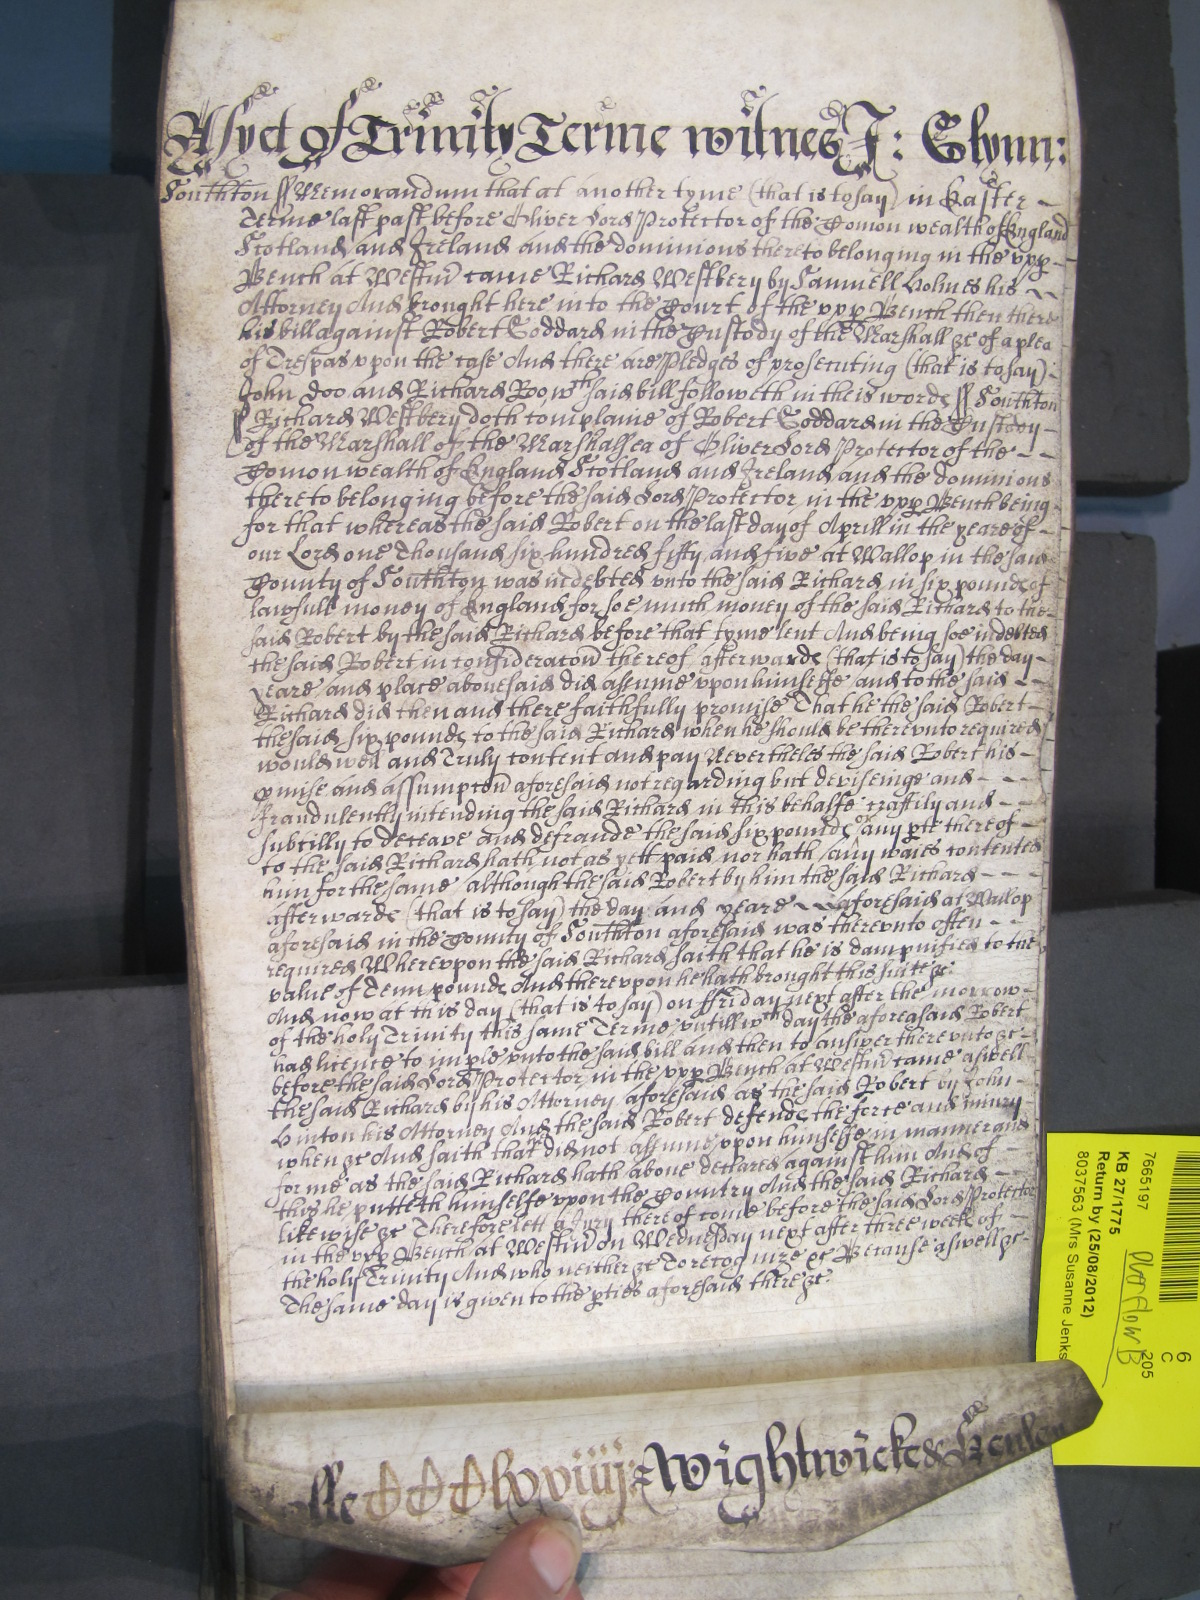 As yet of Trinity Terme witnes J: Glynn:
Southton ss Memorandum that at another tyme (that is to say) in Easter
Terme last past before Oliver Lord Protector of the Comon wealth of England
Scotland and Ireland and the dominions thereto belonging in the upp
Bench at Westm̃ came Richard Westbery by Samuell Holmes his
Attorney And brought here into the Court of the upp Bench then there
his bill against Robert Goddard in the Custody of the Marshall &c of a plea
of Trespas upon the case And there are Pledges of prosecuting (that is to say)
John Doo and Richard Roo wᵗʰ said bill followeth in theis words ss Southton
ss Richard Westbery doth complaine of Robert Goddard in the Custody
of the Marshall of the Marshalsea of Oliver Lord Protector of the
Comon wealth of England Scotland and Ireland and the dominions
thereto belonging before the said Lord Protector in the upp Bench being
for that whereas the said Robert on the last day of Aprill in the yeare of
our Lord one Thousand six hundred fifty and five at Wallop in the said
County of Southton was indebted unto the said Richard in six pounds of
lawfull money of England for soe much money of the said Richard to the
said Robert by the said Richard before that tyme lent And being soe indebted
the said Robert in consideracoñ thereof afterwards (that is to say) the day
yeare and place abovesaid did assume upon himselfe and to the said
Richard did then and there faithfully promise That he the said Robert
the said six pounds to the said Richard when he should be thereunto required
would well and Truly content and pay Nevertheles the said Robert his
pmise and assumpcoñ aforesaid not regarding but deviseinge and
fraudulently intending the said Richard in this behalfe craftily and
subtilly to deceave and defraude the said six pounds or any pte thereof
to the said Richard hath not as yett paid nor hath any waies contented
him for the same although the said Robert by him the said Richard
afterwards (that is to say) the day and yeare aforesaid at Wallop
aforesaid in the County of Southton aforesaid was thereunto often
required Whereupon the said Richard saith that he is dampnified to the
value of Tenn pounds And thereupon he hath brought this suite &c
And now at this day (that is to say) on ffriday next after the morrow
of the holy Trinity this same Terme untill wᶜʰ day the aforesaid Robert
had licence to imple unto the said bill and then to answer thereunto &c
before the said Lord Protector in the upp Bench at Westm̃ came aswell
the said Richard by his Attorney aforesaid as the said Robert by John
Hinton his Attorney And the said Robert defends the force and iniury
when &c And saith that did not assume upon himselfe in manner and
forme as the said Richard hath above declared against him And of
this he putteth himselfe upon the Country And the said Richard
likewise &c Therefore lett a Jury thereof come before the said Lord Protector
in the upp Bench at Westm̃ on Wednesday next after three weeks of
the holy Trinity And who neither &c To recognize &c Because aswell &c
The same day is given to the pties aforesaid there &c
Wightwicke &
7665197
KB 27/1775
Return by (25/08/2012)
8037563 (Mrs Susanne Jenks
205
6
C